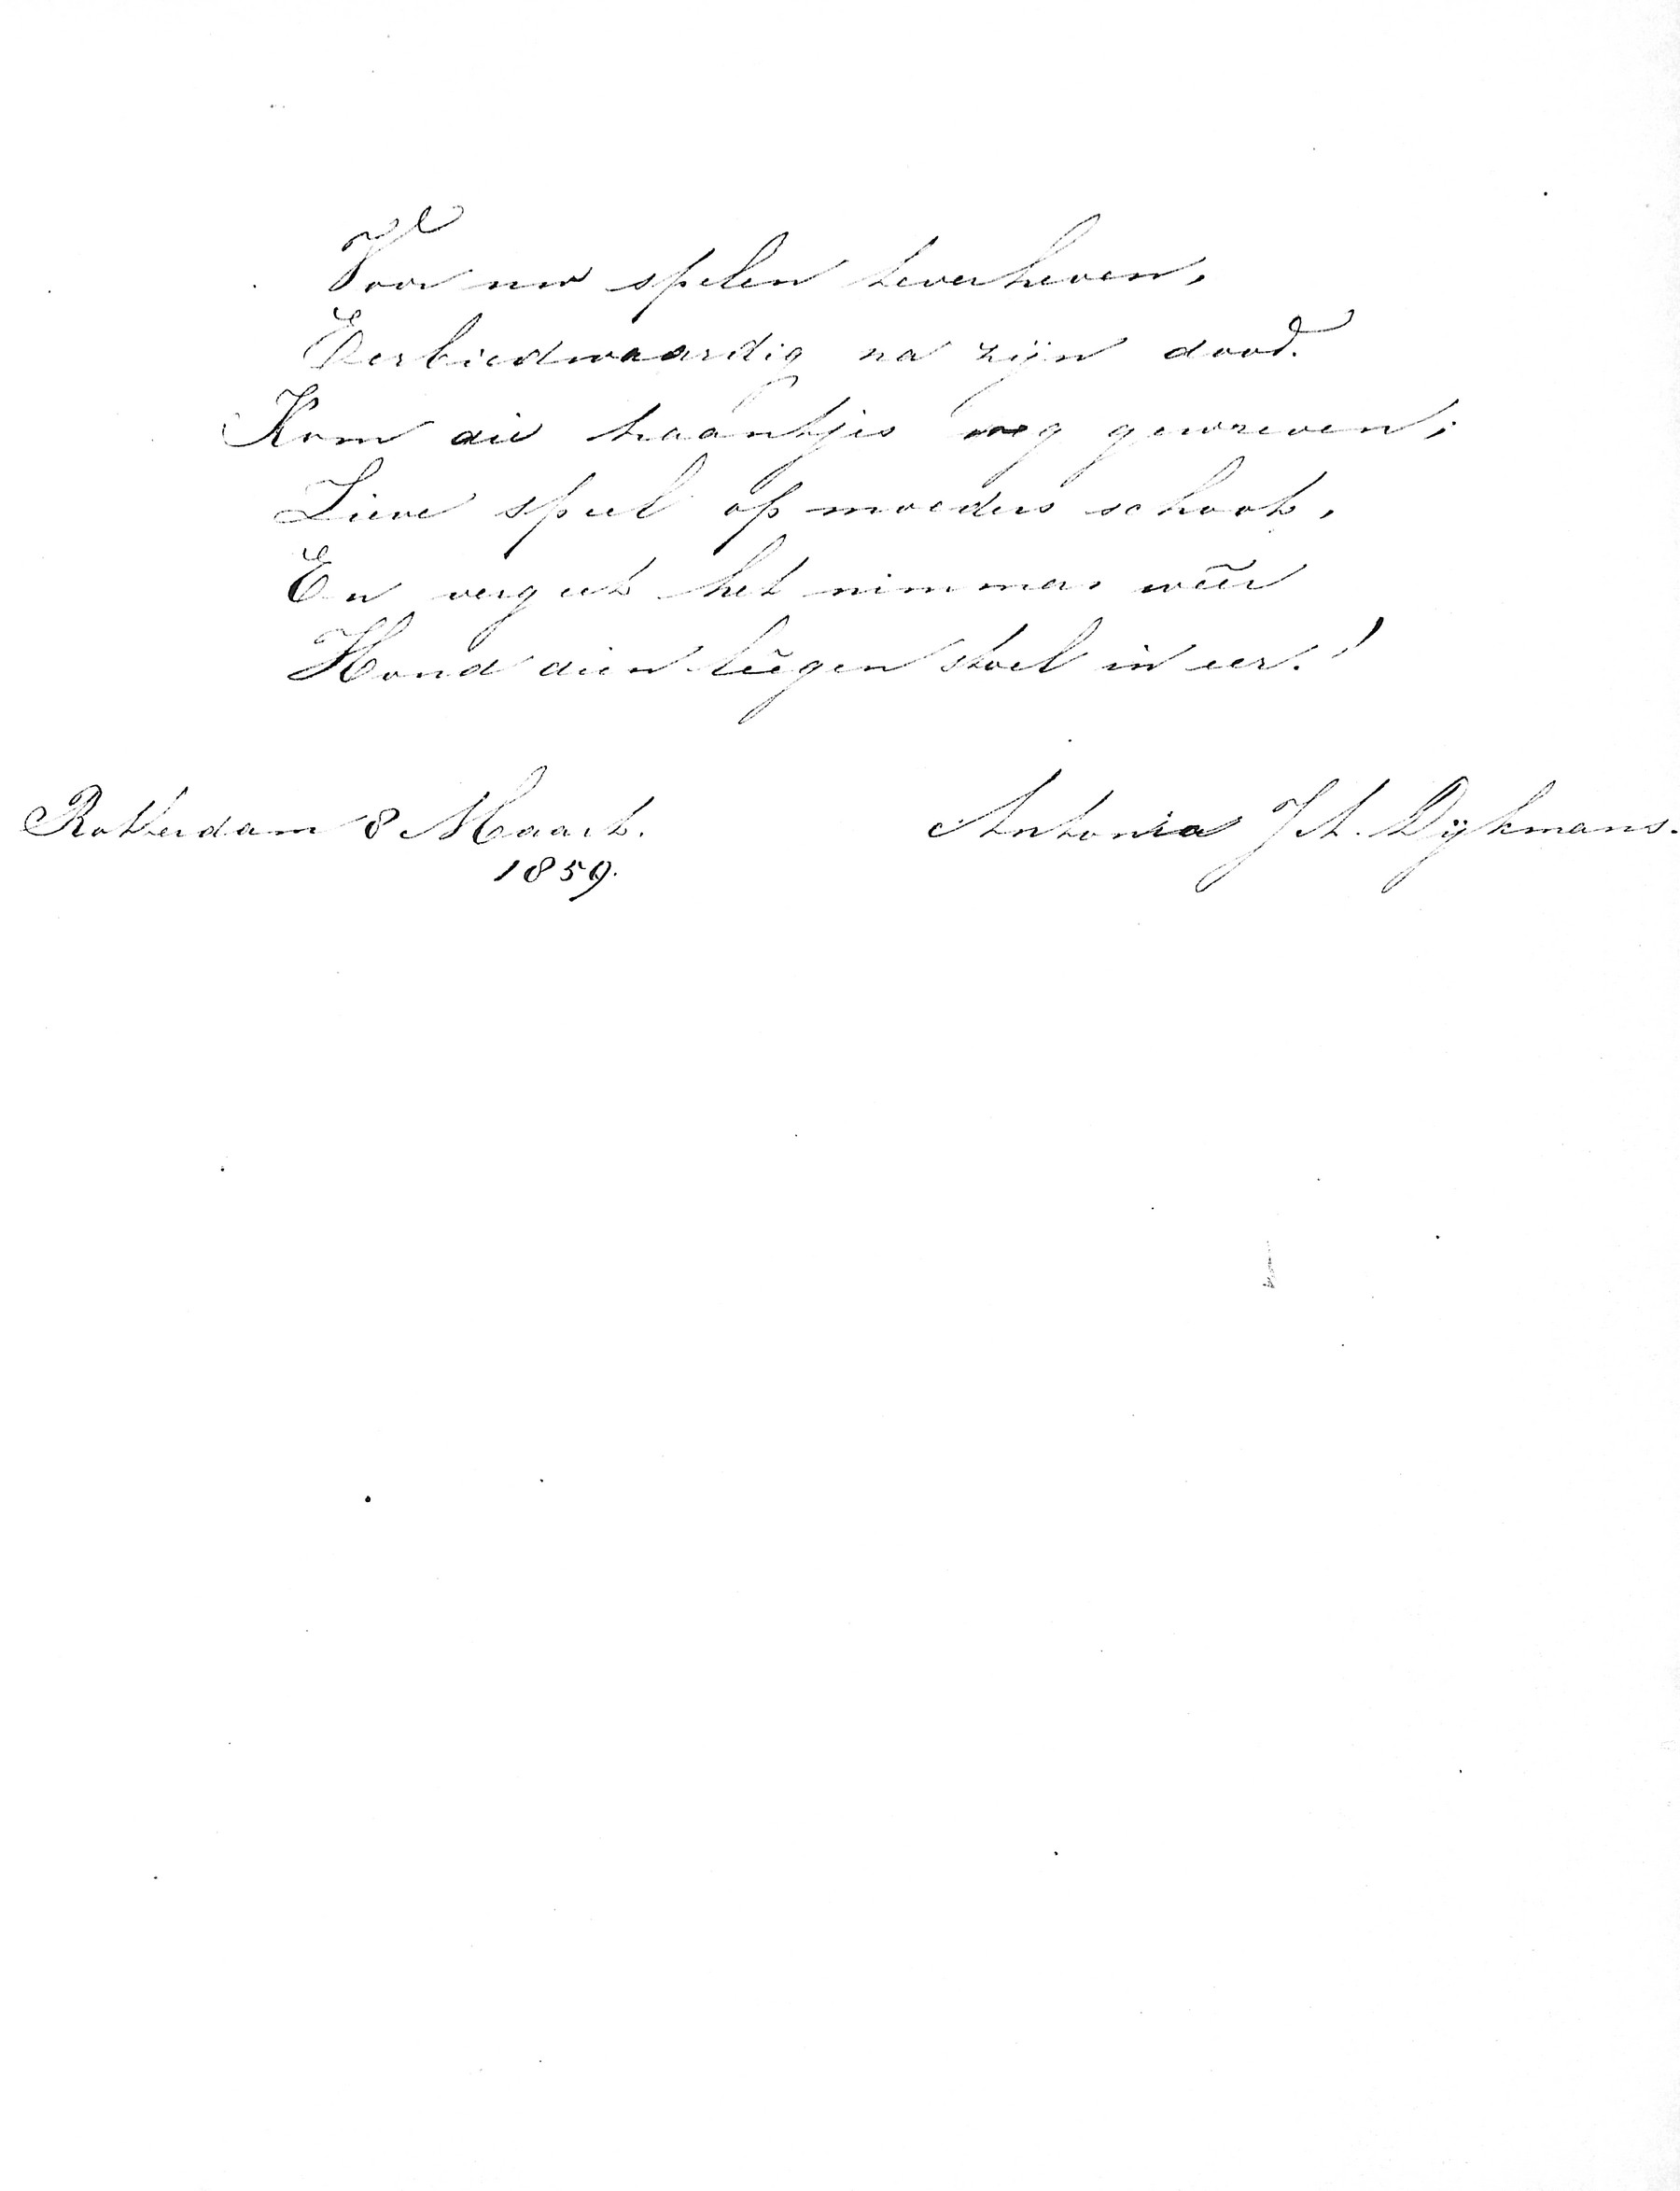 Voor uw spelen te verheven,
Eerbiedwaardig na zijn dood.
Kom die traantjes weg gewreven;
Lieve speel op moeders schoot,
En vergeet het nimmer weêr
Houd dien leêgen stoel in eer!
Rotterdam 8 Maart. Antonia J A. Dijkmans.
1859.